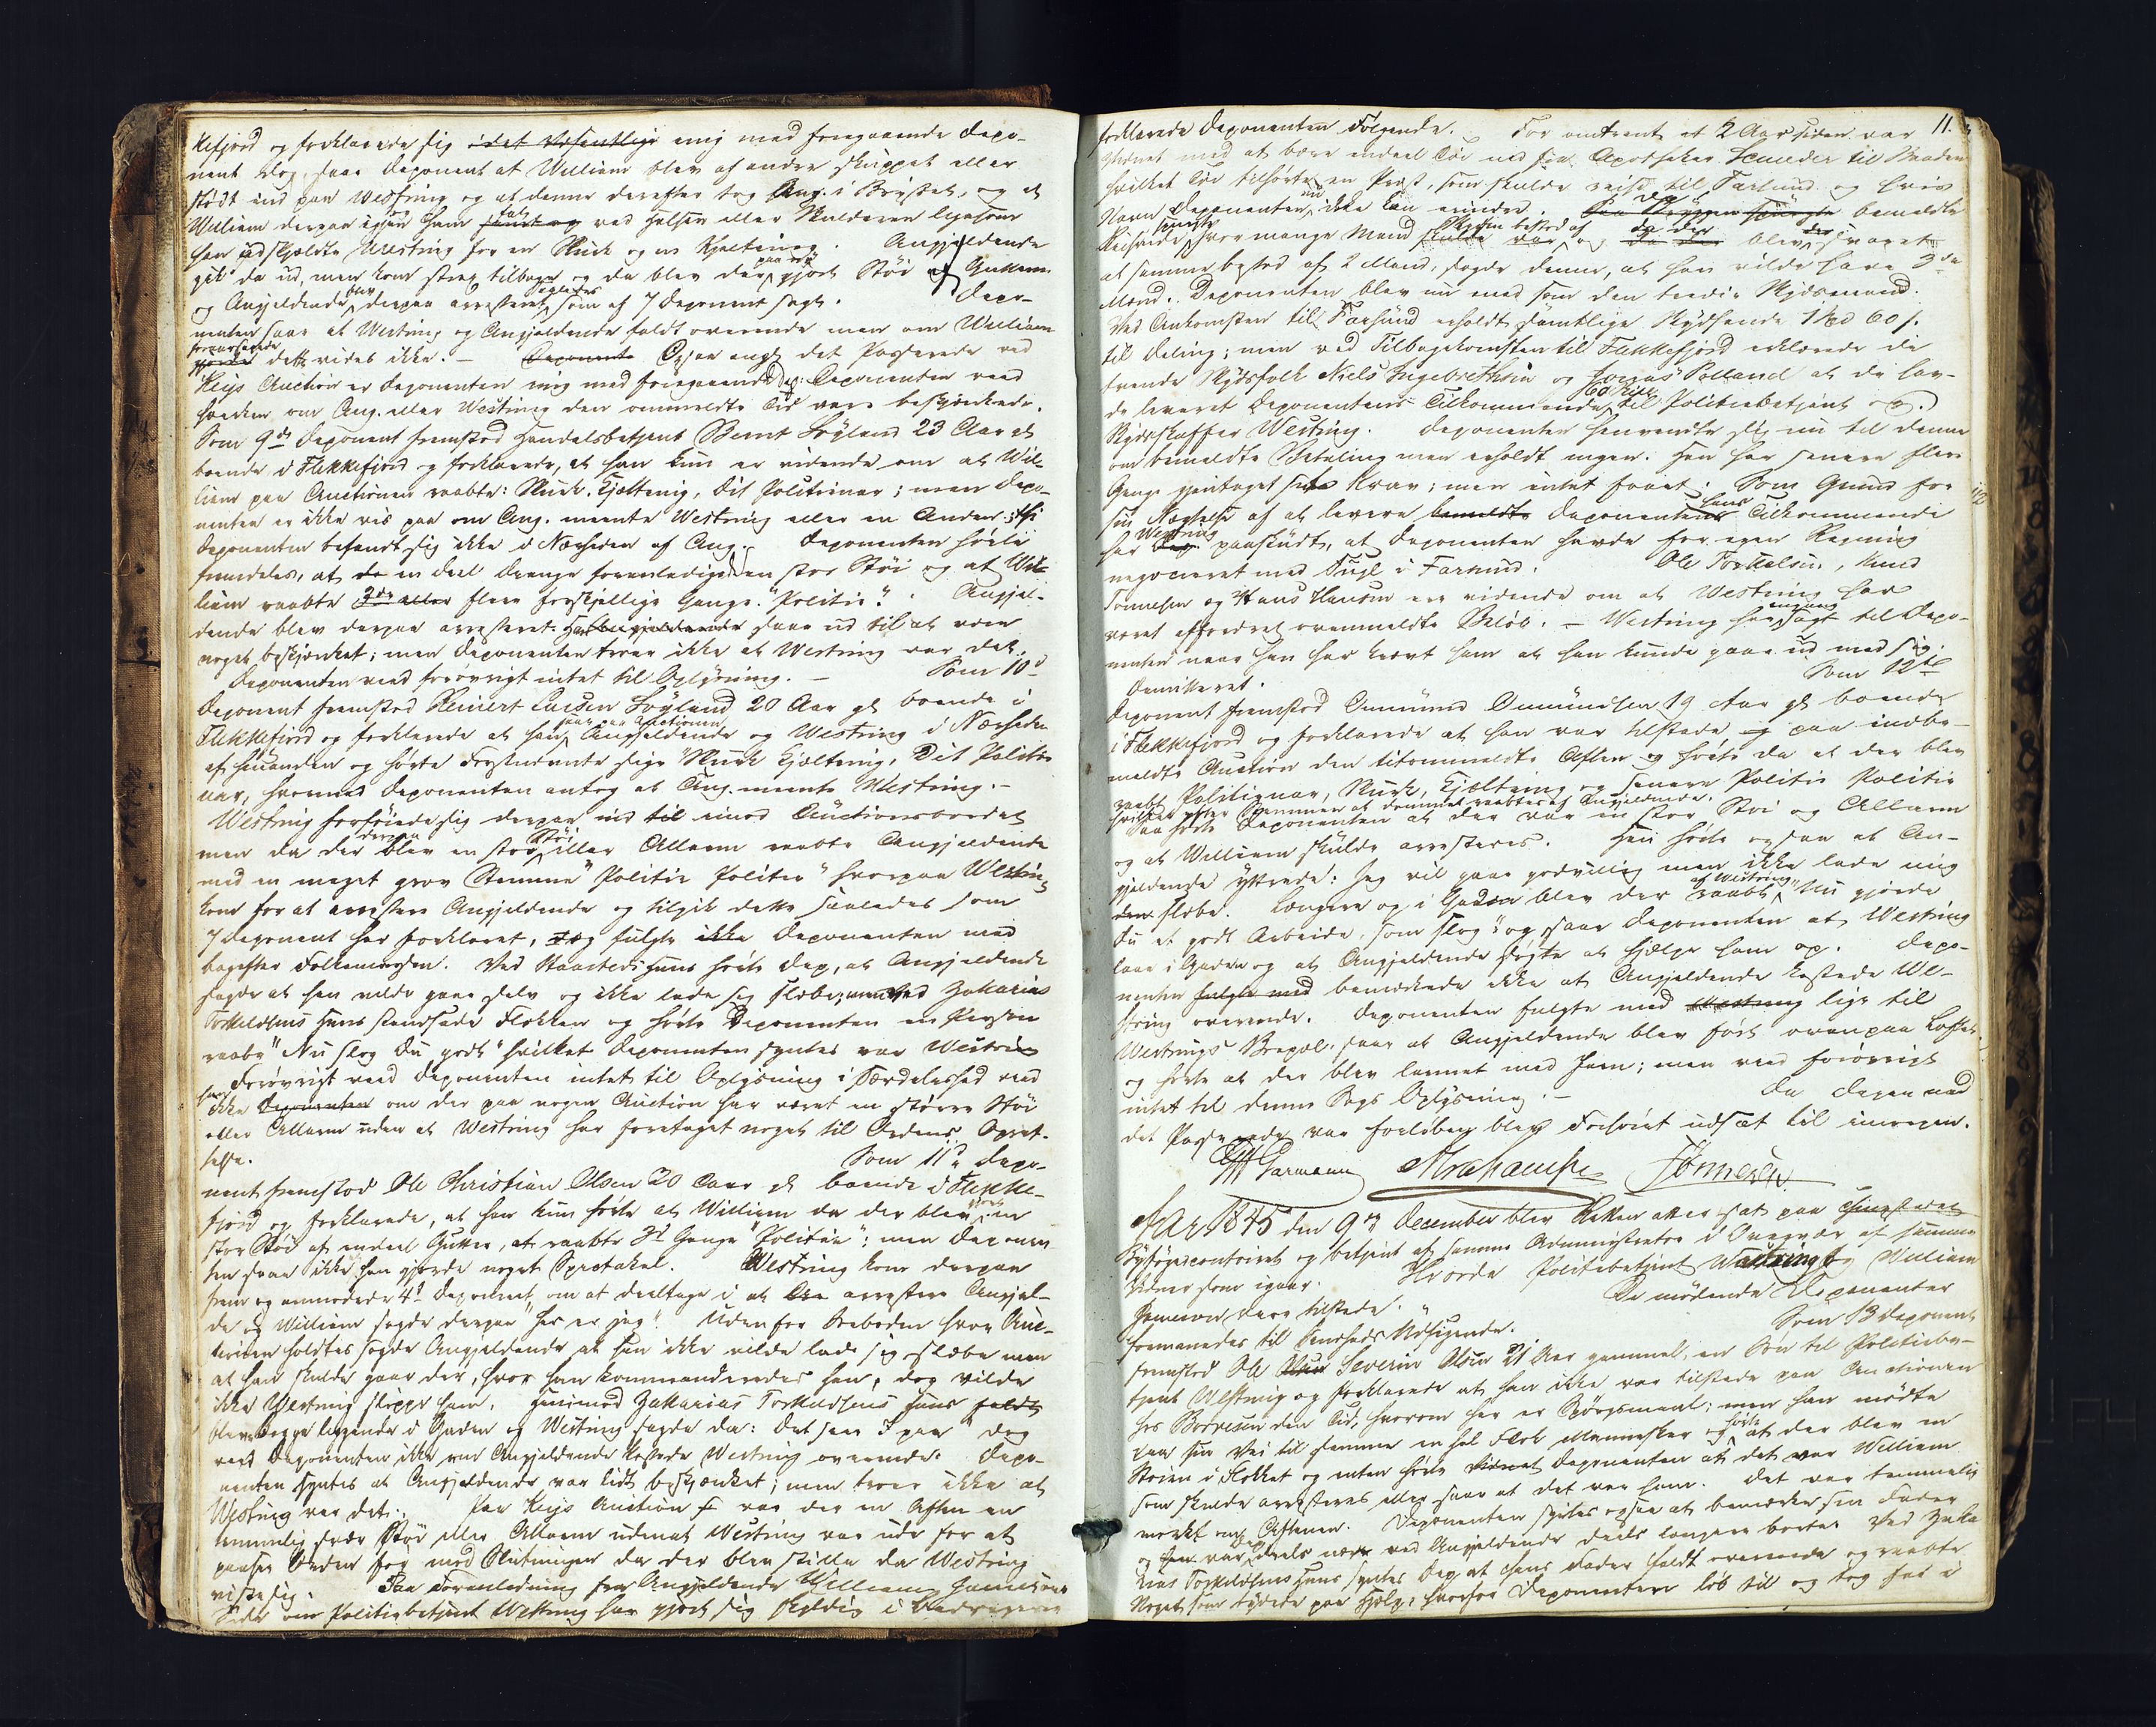 kefjord og forklarede sig i det Væsentlige enig med foregaaende Depo-
nent dog saae Deponent at William blev af andre skuppet eller
stødt ind paa Westring og at denne derefter tog Ang. i Brystet, og at
William derpaa igjen ham fat ved Halsen eller Skulderen ligesom
han udskjeldte Westring for en Skurk og en Kjæltring. Angjeldende
gik da ud, men kom strax tilbage og da blev der paa ny gjort Støi af Guttene
og Angjeldende blev derpaa arresteret saaledes som af 7 Deponent sagt. Depo-
nenten saae at Westring og Angjeldende faldt overende men om William
foraarsagede dette vides ikke. — Ogsaa angd det Passerede ved
Keys Auction er Deponenten enig med foregaaende Dep: Deponenten veed
hverken om Ang. eller Westring den ommeldte Tid vare beskjænkede.
Som 9de Deponent fremstod Handelsbetjent Bernt Løyland 23 Aar gl
boende i Flekkefjord og forklarede, at han kun er vidende om at Wil-
liam paa Auctionen raabte: Skurk, Kjæltring, Dit Politinar; men Depo-
nenten er ikke vis paa om Ang. meente Westring eller en Anden; thi
Deponenten befandt sig ikke i Nærheden af Ang. Deponenten hørte
fremdeles, at en Deel Drenge foranledigede en stor Støi og at Wil-
liam raabte flere forskjellige Gange "Politie". Angjel-
dende blev derpaa arresteret. Han saae ud til at være
noget beskjænket; men Deponenten troer ikke at Westring var det.
Deponenten veed forøvrigt intet til Oplysning. — Som 10d
Deponent fremstod Reinert Larsen Løyland 20 Aar gl boende i
Flekkefjord og forklarede at han saae paa Auctionen Angjeldende og Westring i Nærheden
af hinanden og hørte Førstnævnte sige "Skurk Kjæltring, Dit Politi-
nar, hvormed Deponenten antog at Ang. meente Westring. —
Westring forføiede sig derpaa ind til imod Auctionsbordet
men da der derpaa blev en stor Støi eller Allarm raabte Angjeldende
med en meget grov Stemme "Politie Politie" hvorpaa Westring
kom for at arrestere Angjeldende og tilgik dette saaledes som
7 Deponent har forklaret, og fulgte Deponenten med
bagefter Folkemængden. Ved Haastads Huus hørte Dep, at Angjeldende
sagde at han vilde gaae selv og ikke lade sig slæbe, men ved Zakarias
Torkildsens Huus standsede Flokken og hørte Deponenten en Person
raabe "Nu slog Du godt" hvilket Deponenten syntes var Westring
Forøvrigt veed Deponenten intet til Oplysning i Særdeleshed veed
han ikke om der paa nogen Auction har været en større Støi
eller Allarm uden at Westring har foretaget noget til Ordens Opret-
telse. Som 11te Depo-
nent fremstod Ole Christian Olsen 20 Aar gl boende i Flekke-
fjord og forklarede, at han kun hørte at William da der blev gjort en
stor Støi af endeel Gutter, at raabte 3de Gange "Politie": men Deponen-
ten saae ikke han gjorde noget Spectakel. Westring kom derpaa
frem og anmodede 4de Deponent om at deeltage i at arrestere Angjel-
de og William sagde derpaa "her er jeg". Udenfor Søeboden hvor Auc-
tionen holdtes sagde Angjeldende at han ikke vilde lade sig slæbe men
at han skulde gaae der, hvor han kommanderedes hen, dog vilde
ikke Westring slippe ham. Henimod Zakarias Torkildsens Huus
bleve Begge liggende i Gaden og Westring sagde da: Det saae I paa dog
veed Deponenten ikke om Angjeldende kastede Westring overende. Depo-
nenten syntes at Angjeldende var lidt beskjænket; men troer ikke at
Westring var det. Paa Keys Auction var der en Aften en
temmelig svær Støi eller Allarm uden at Westring var ude for at
paasee Orden dog mod Slutningen da der blev stille da Westring
viste sig. Paa Foranledning fra Angjeldende William Jameson
Sidse om Politiebetjent Westring har gjort sig skyldig i Bedragerie
11.
forklarede Deponenten Følgende. For omtrent et 2 Aar siden var
han med at bære endeel Tøi ned fra Apotheker Schneider til Stranden
hvilket Tøi tilhørte en Præst, som skulde reise til Farsund og hvis
Navn Deponenten nu ikke kan erindre. Da bemeldte
Reisende spurgte hvor mange Mand Skydsen bestod af og da der blev svaret
at samme bestod af 2 Mand, sagde denne, at han vilde have 3de
Mand. Deponenten blev nu med som den tredie Skydsmand.
Ved Ankomsten til Farsund erholdt samtlige Skydsende 1 Spd 60 s.
til Deling; men ved Tilbagekomsten til Flekkefjord erklærede de
tvende Skydsfolk Niels Ingebrethsen og Jonas Poland at de hav-
de leveret Deponentens Tilkommende 60 Skill til Politiebetjent og
Skydsskaffer Westring. Deponenten henvendte sig nu til denne
om bemeldte Betaling men erholdt ingen. Han har senere flere
Gange gjentaget sit Krav; men intet faaet. Som Grund for
sin Nægtelse af at levere Deponenten hans Tilkommende
har Westring paaskudt, at Deponenten havde for egen Regning
negocieret med Fugl i Farsund. Ole Torkelsen, Knud
Tønnesen og Hans Hansen ere vidende om at Westring har
været affordret ovenmeldte Beløb. — Westring har engang sagt til Depo-
nenten naar han har krævt ham at han kunde gaae ud med sig.
Demitteret. Som 12te
Deponent fremstod Ommund Ommundsen 19 Aar gl boende
i Flekkefjord og forklarede at han var tilstede paa indbe-
meldte Auction den litommeldte Aften og hørte da at der blev
raabt Politignar, Skurk, Kjæltring og senere Politie Politie
hvilket efter Stemmen at dømme raabtes af Angjeldende.
Saa hørte Deponenten at der var en stor Støi og Allarm
og at William skulde arresteres. Han hørte ogsaa at An-
gjeldende yttrede: Jeg vil gaae godvillig men ikke lade mig
slæbe. Længere op i Gaden blev der raabt af Westring "Nu gjorde
Du et godt Arbeide, som slog" og saae Deponenten at Westring
laae i Gaden og at Angjeldende søgte at hjælpe ham op. Depo-
nenten bemærkede ikke at Angjeldende kastede We-
string overende. Deponenten fulgte med lige til
Westrings Bopæl, saae at Angjeldende blev ført ovenpaa Loftet
og hørte at der blev lænket med Jern; men veed forøvrigt
intet til denne Sags Oplysning. — Da Dagen med
det Passerede var forløben blev Forhøret udsat til imorgen.
Garmann Tønnesen
Aar 1845 den 9de December blev Retten atter sat paa Thingstedet
Byfogedcontoiret og betjent af samme Administrator i Overvær af samme
Vidner som igaar. Hvorda Politiebetjent Westring og William
Jameson vare tilstede. De mødende Deponenter
formanedes til Sandheds Udsigende. Som 13 Deponent
fremstod Ole Severin Olsen 21 Aar gammel, en Søn til Politiebe-
tjent Westring og forklarede at han ikke var tilstede paa Auctionen
hos Børresen den Tid, hvorom her er Spørgsmaal; men han mødte
paa sin Vei til samme en hel Flok Mennesker og hørte at der blev en
Støien i Flokket og enten hørte Deponenten at det var William
som skulde arresteres eller saae at det var ham. Det var temmelig
mørkt om Aftenen. Deponenten syntes ogsaa at bemærke sin Fader
og var Dep deels nær ved Angjeldende deels længere borte. Ved Zaka-
rias Torkildsens Huus syntes Dep at hans Fader faldt overende og raabte
Noget som tydede paa Hjelp, hvorfor Deponenten løb til og tog fat i